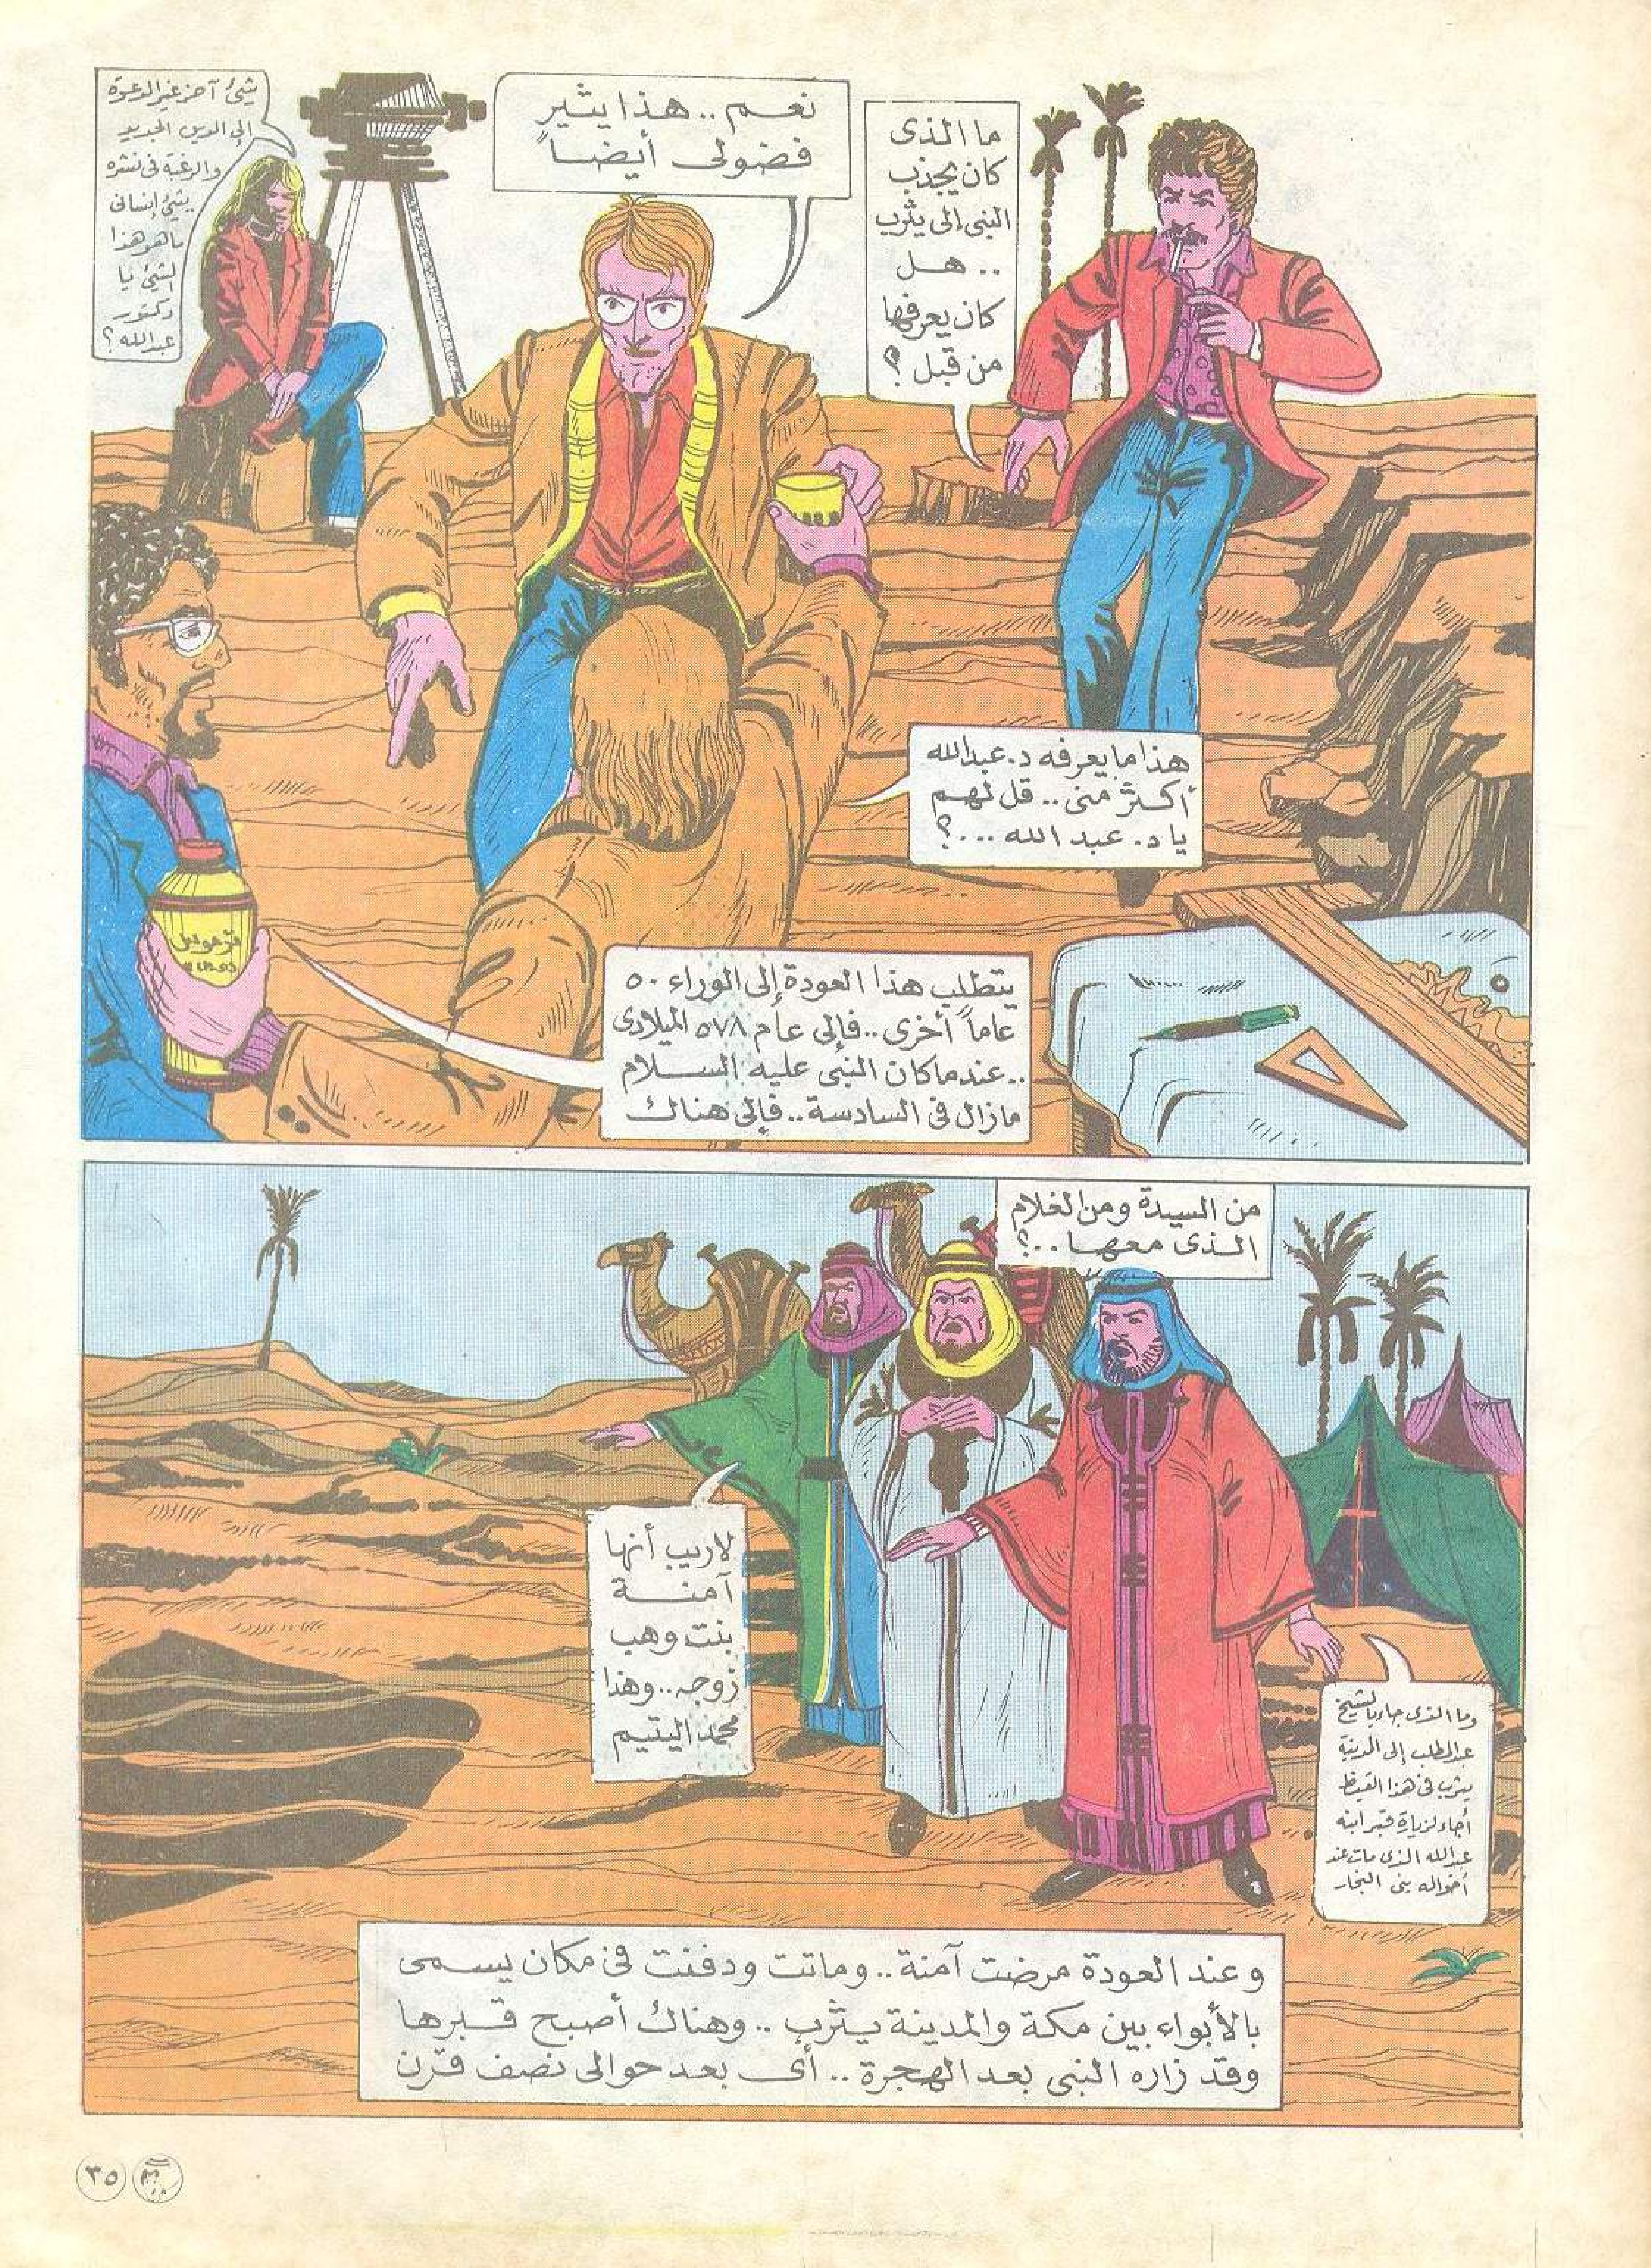 ما الذى
كان يجذب
النبى إلى يثرب
.. هل
كان يعرفها
من قبل ؟
نعم .. هذا يثير
فضولى أيضاً
شئ آخر غير الدعوة
إلى الدين الجديد
والرغبة فى نشره
شئ إنسانى
ما هو هذا
الشئ يا
دكتور
عبدالله ؟
هذا ما يعرفه د. عبدالله
أكثر منى .. قل لهم
يا د. عبد الله ...؟
ترموس
يتطلب هذا العودة إلى الوراء ٥٠
عاماً أخرى .. فإلى عام ٥٧٨ الميلادى
.. عندما كان النبى عليه السلام
مازال فى السادسة .. فإلى هناك
من السيدة ومن الغلام
الذى معها ..؟
لاريب أنها
آمنة
بنت وهب
زوجه .. وهذا
محمد اليتيم
وما الذى جاء بالشيخ
عبدالمطلب إلى المدينة
يثرب فى هذا القيظ
أجاء لزيارة قبر ابنه
عبدالله الذى مات عند
أخواله بنى النجار
وعند العودة مرضت آمنة .. وماتت ودفنت فى مكان يسمى
بالأبواء بين مكة والمدينة يثرب .. وهناك أصبح قبرها
وقد زاره النبى بعد الهجرة .. أى بعد حوالى نصف قرن
٣٥